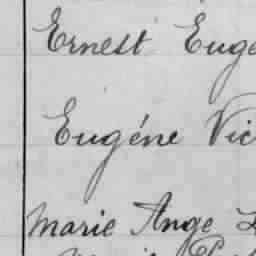 Ernest Euge
Eugéne Vic
Marie Ange L